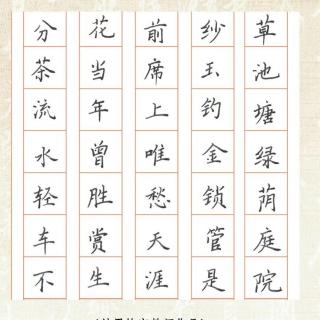 草池塘绿荫庭院
纱玉钓金锁管是
前席上唯愁天涯
花当年曾胜赏生
分茶流水轻车不